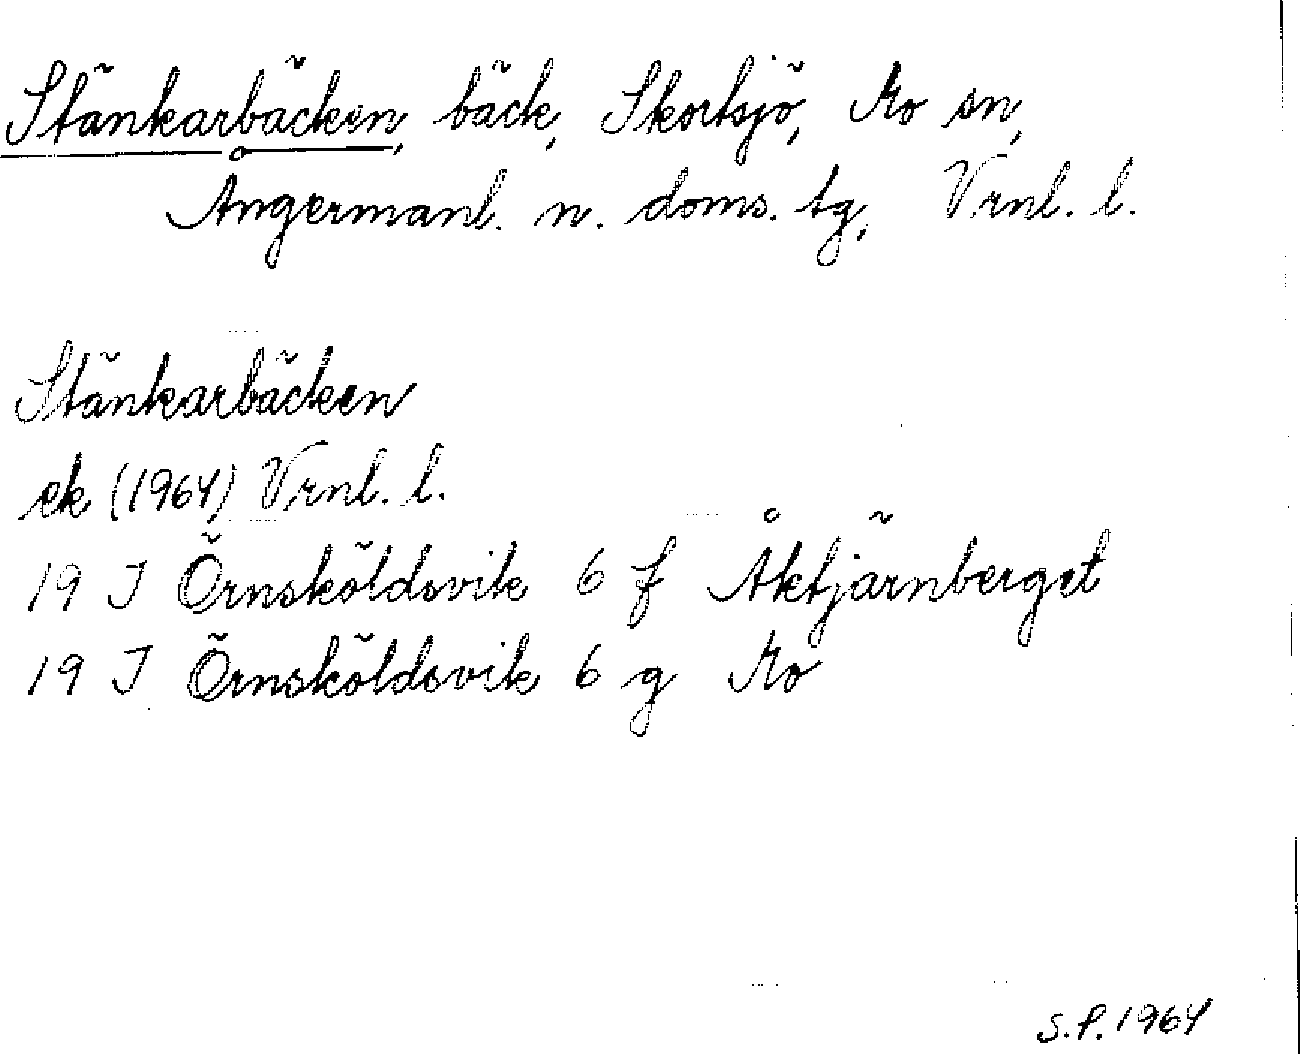 Stänkarbäcken, bäck, Skortsjö, Mo sn,
Ångermanl. n. doms. tg, Vrnl. l.
Stänkarbäcken
ek (1964) Vrnl. l.
19 J Örnsköldsvik 6 f Åktjärnberget
19 J Örnsköldsvik 6 g Mo
S.P. 1964